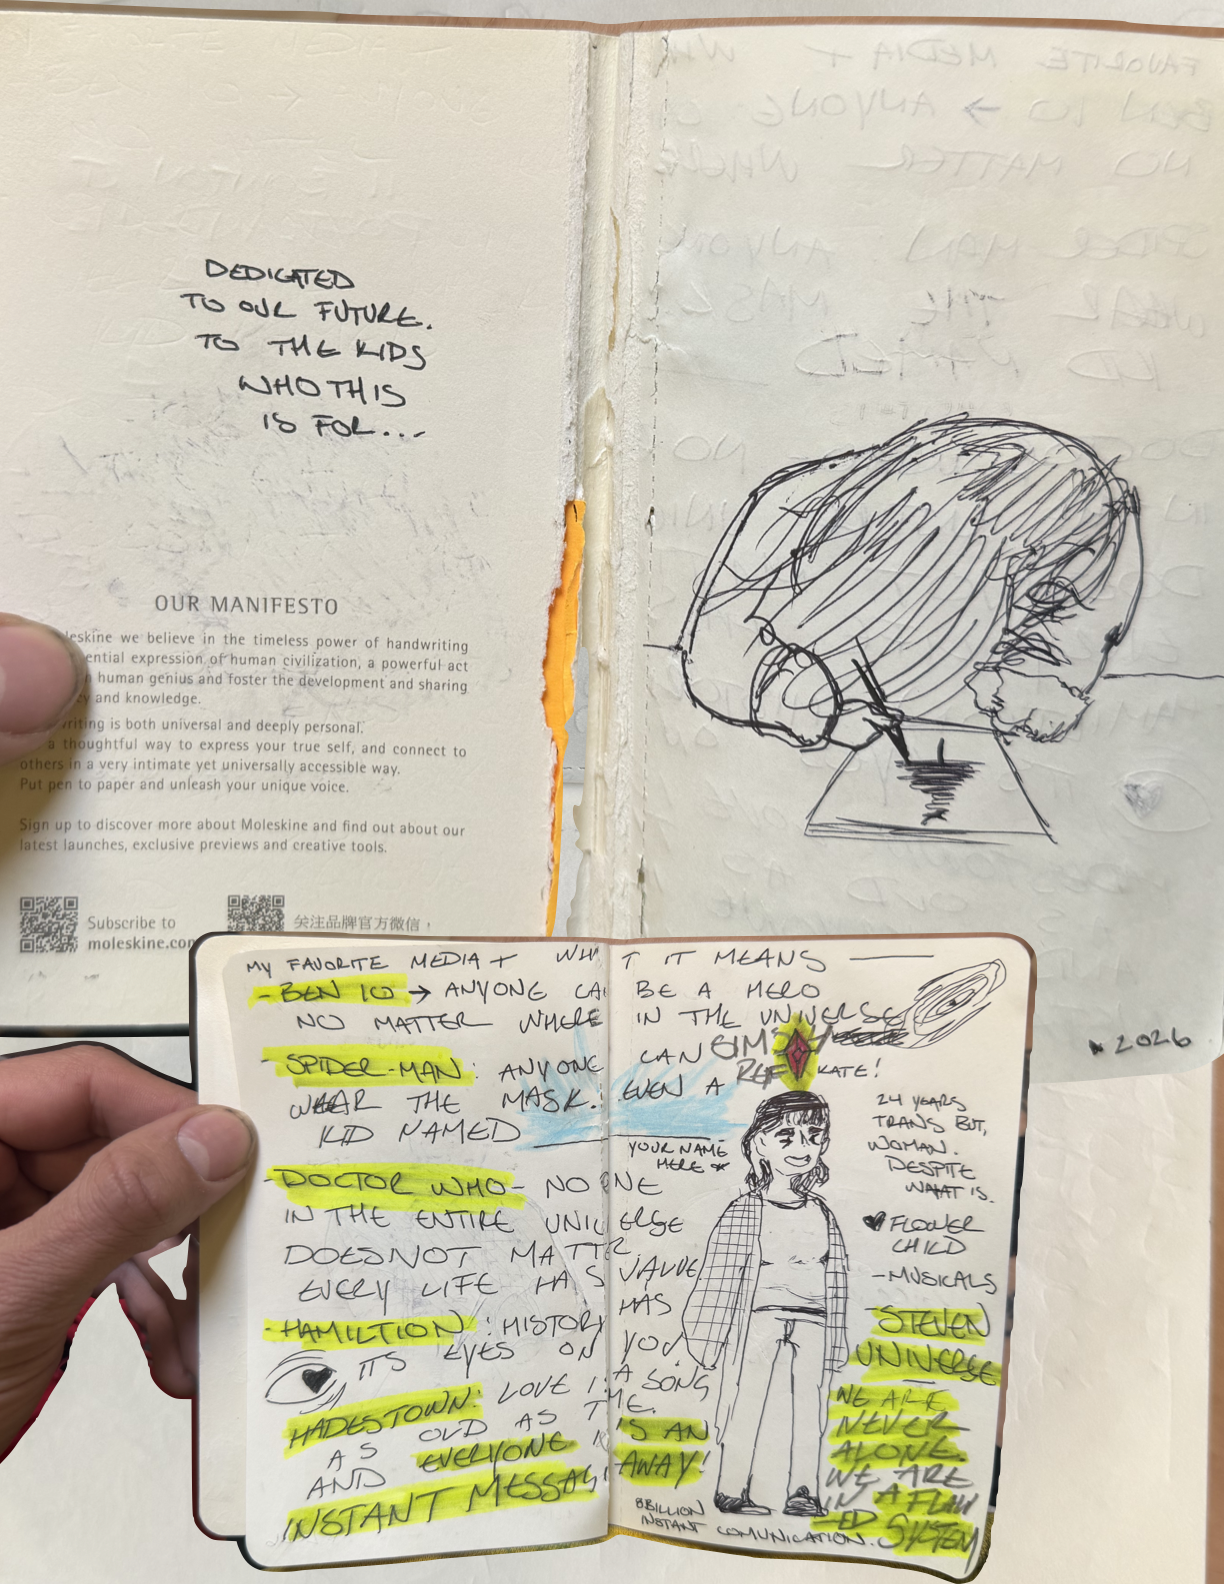 DEDICATED
TO OUR FUTURE.
TO THE KIDS
WHO THIS
IS FOR...
OUR MANIFESTO
leskine we believe in the timeless power of handwriting
ential expression of human civilization, a powerful act
human genius and foster the development and sharing
y and knowledge.
riting is both universal and deeply personal.
a thoughtful way to express your true self, and connect to
others in a very intimate yet universally accessible way.
Put pen to paper and unleash your unique voice.
Sign up to discover more about Moleskine and find out about our
latest launches, exclusive previews and creative tools.
Subscribe to
moleskine.com
关注品牌官方微信，
2026
MY FAVORITE MEDIA + WH T IT MEANS
- BEN 10 → ANYONE CA BE A HERO
NO MATTER WHERE IN THE UNIVERSE
- SPIDER-MAN: ANYONE CAN
WEAR THE MASK. EVEN A
KID NAMED
YOUR NAME
HERE *
- DOCTOR WHO - NO ONE
IN THE ENTIRE UNIVERSE
DOES NOT MATTER
EVERY LIFE HAS VALUE
- HAMILTION: HISTORY HAS
ITS EYES ON YOU.
HADESTOWN: LOVE IS A SONG
AS OLD AS TIME.
AND EVERYONE IS AN
INSTANT MESSAG AWAY!
8 BILLION
INSTANT COMUNICATION.
KATE!
24 YEARS
TRANS BUT,
WOMAN.
DESPITE
WHAT IS.
♥ FLOWER
CHILD
- MUSICALS
- STEVEN
UNIVERSE
WE ARE
NEVER
ALONE.
WE ARE
IN A FLAW
-ED SYSTEM